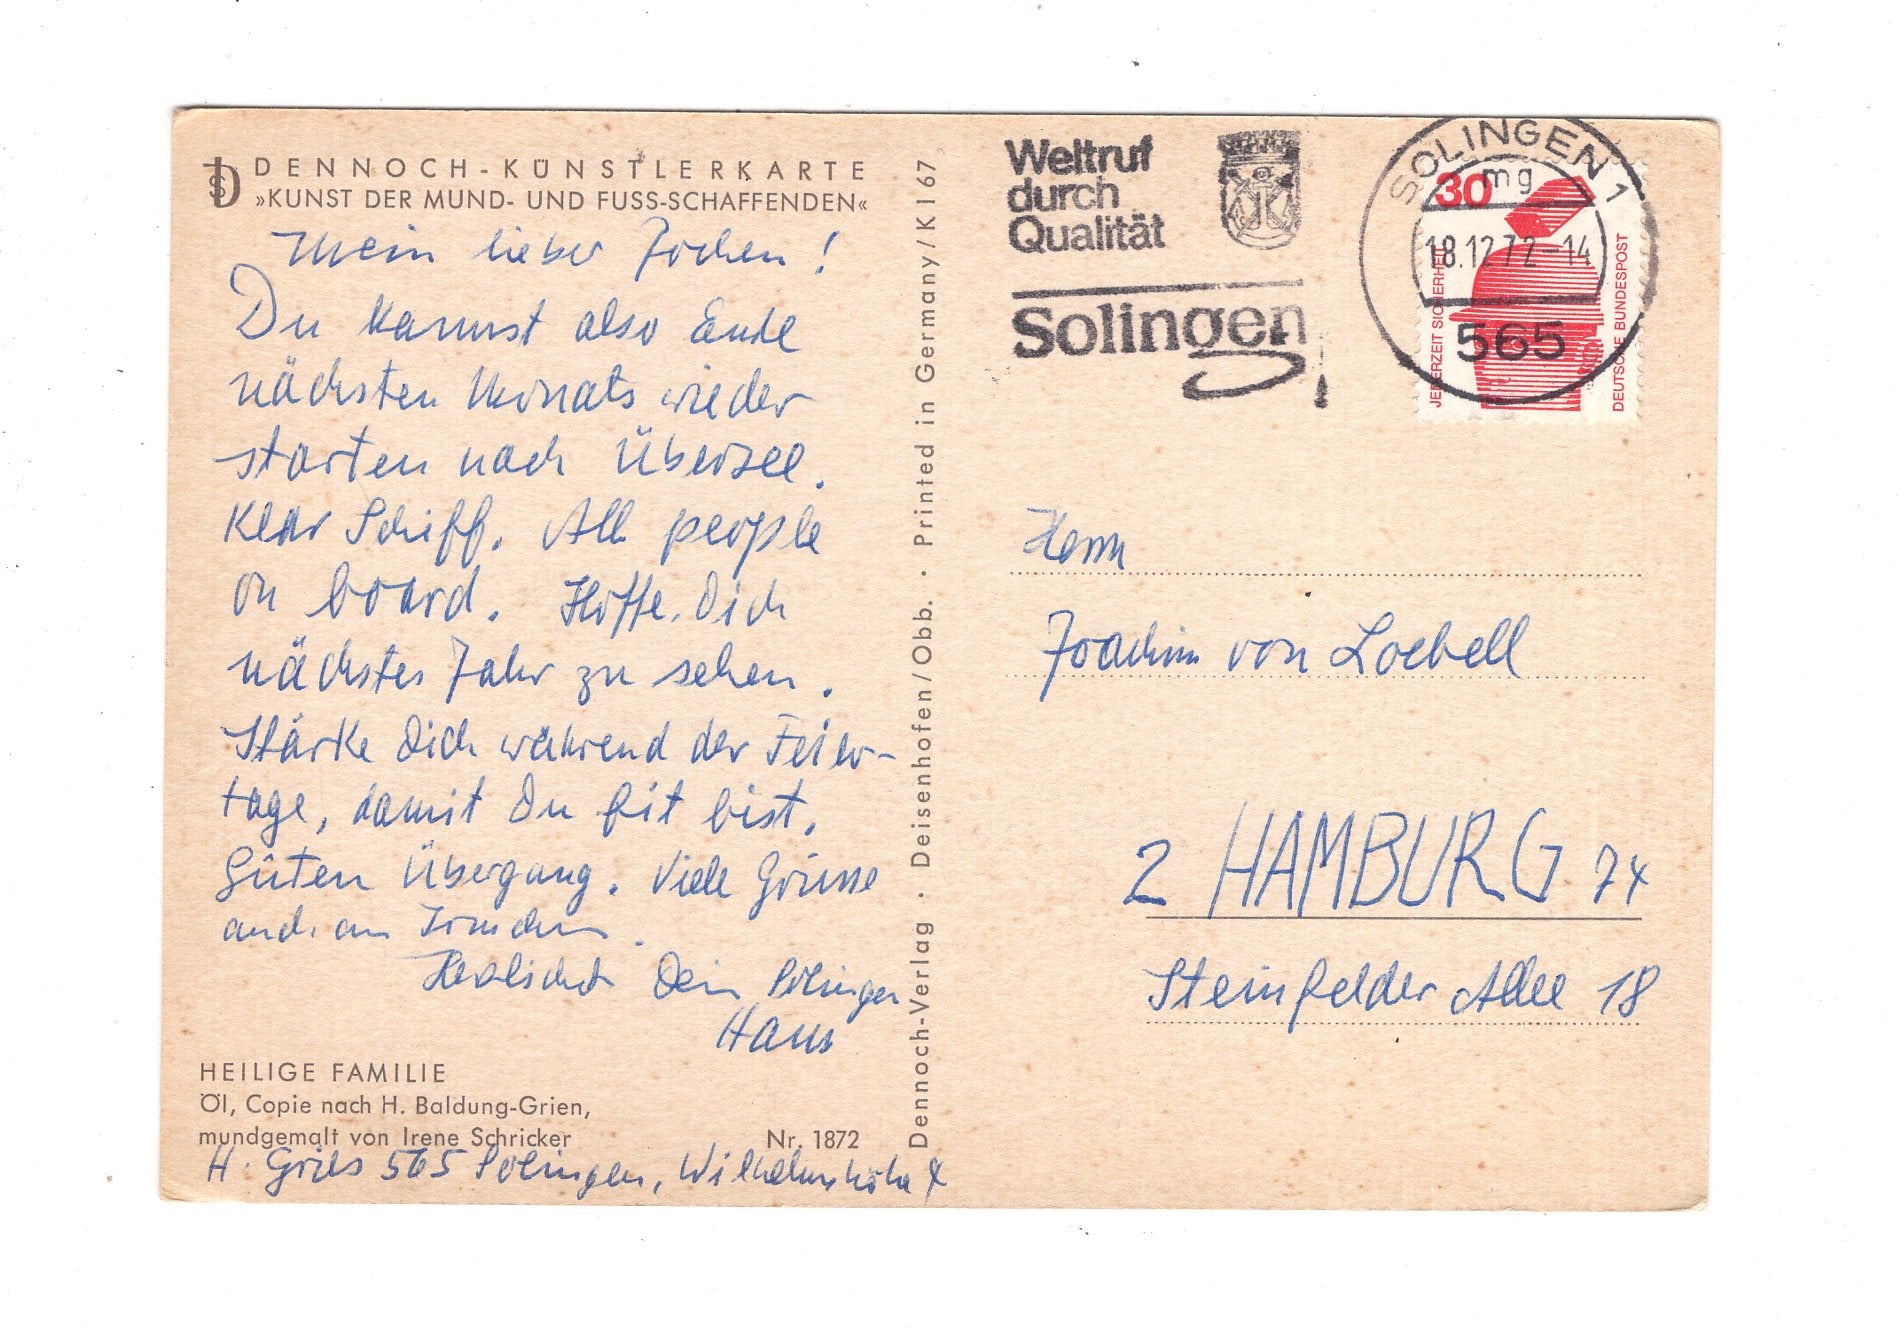 DENNOCH-KÜNSTLERKARTE
»KUNST DER MUND- UND FUSS-SCHAFFENDEN«
Mein lieber Jochen!
Du kannst also Ende
nächsten Monats wieder
starten nach Übersee.
Klar Schiff. All people
on board. Hoffe, Dich
nächstes Jahr zu sehen.
Stärke Dich während der Feier-
tage, damit Du fit bist.
Guten Übergang. Viele Grüsse
auch an
Herzlichst Dein Solinger
Hans
HEILIGE FAMILIE
Öl, Copie nach H. Baldung-Grien,
mundgemalt von Irene Schricker
Nr. 1872
H. Gries 565 Solingen, Wilhelmshöhe
Dennoch-Verlag · Deisenhofen/Obb. · Printed in Germany/K I 67
Weltruf
durch
Qualität
Solingen
SOLINGEN 1
mg
18.12.72-14
565
30
JEDERZEIT SICHERHEIT
DEUTSCHE BUNDESPOST
Herrn
Joachim von Loebell
2 HAMBURG 74
Steinfelder Allee 18